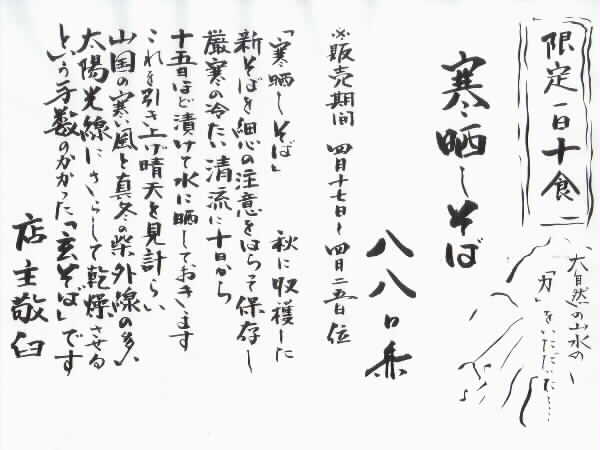 限定一日十食
大自然の山水の
「力」をいただいた……
寒晒しそば
八八〇円
※販売期間 四月十七日〜四月二五日位
「寒晒しそば」 秋に収穫した
新そばを細心の注意をはらって保存し
厳寒の冷たい清流に十日から
十五日ほど漬けて水に晒しておきます
これを引き上げ晴天を見計らい
山国の寒い風と真冬の紫外線の多い
太陽光線にさらして乾燥させる
という手数のかかった「玄そば」です
店主敬白